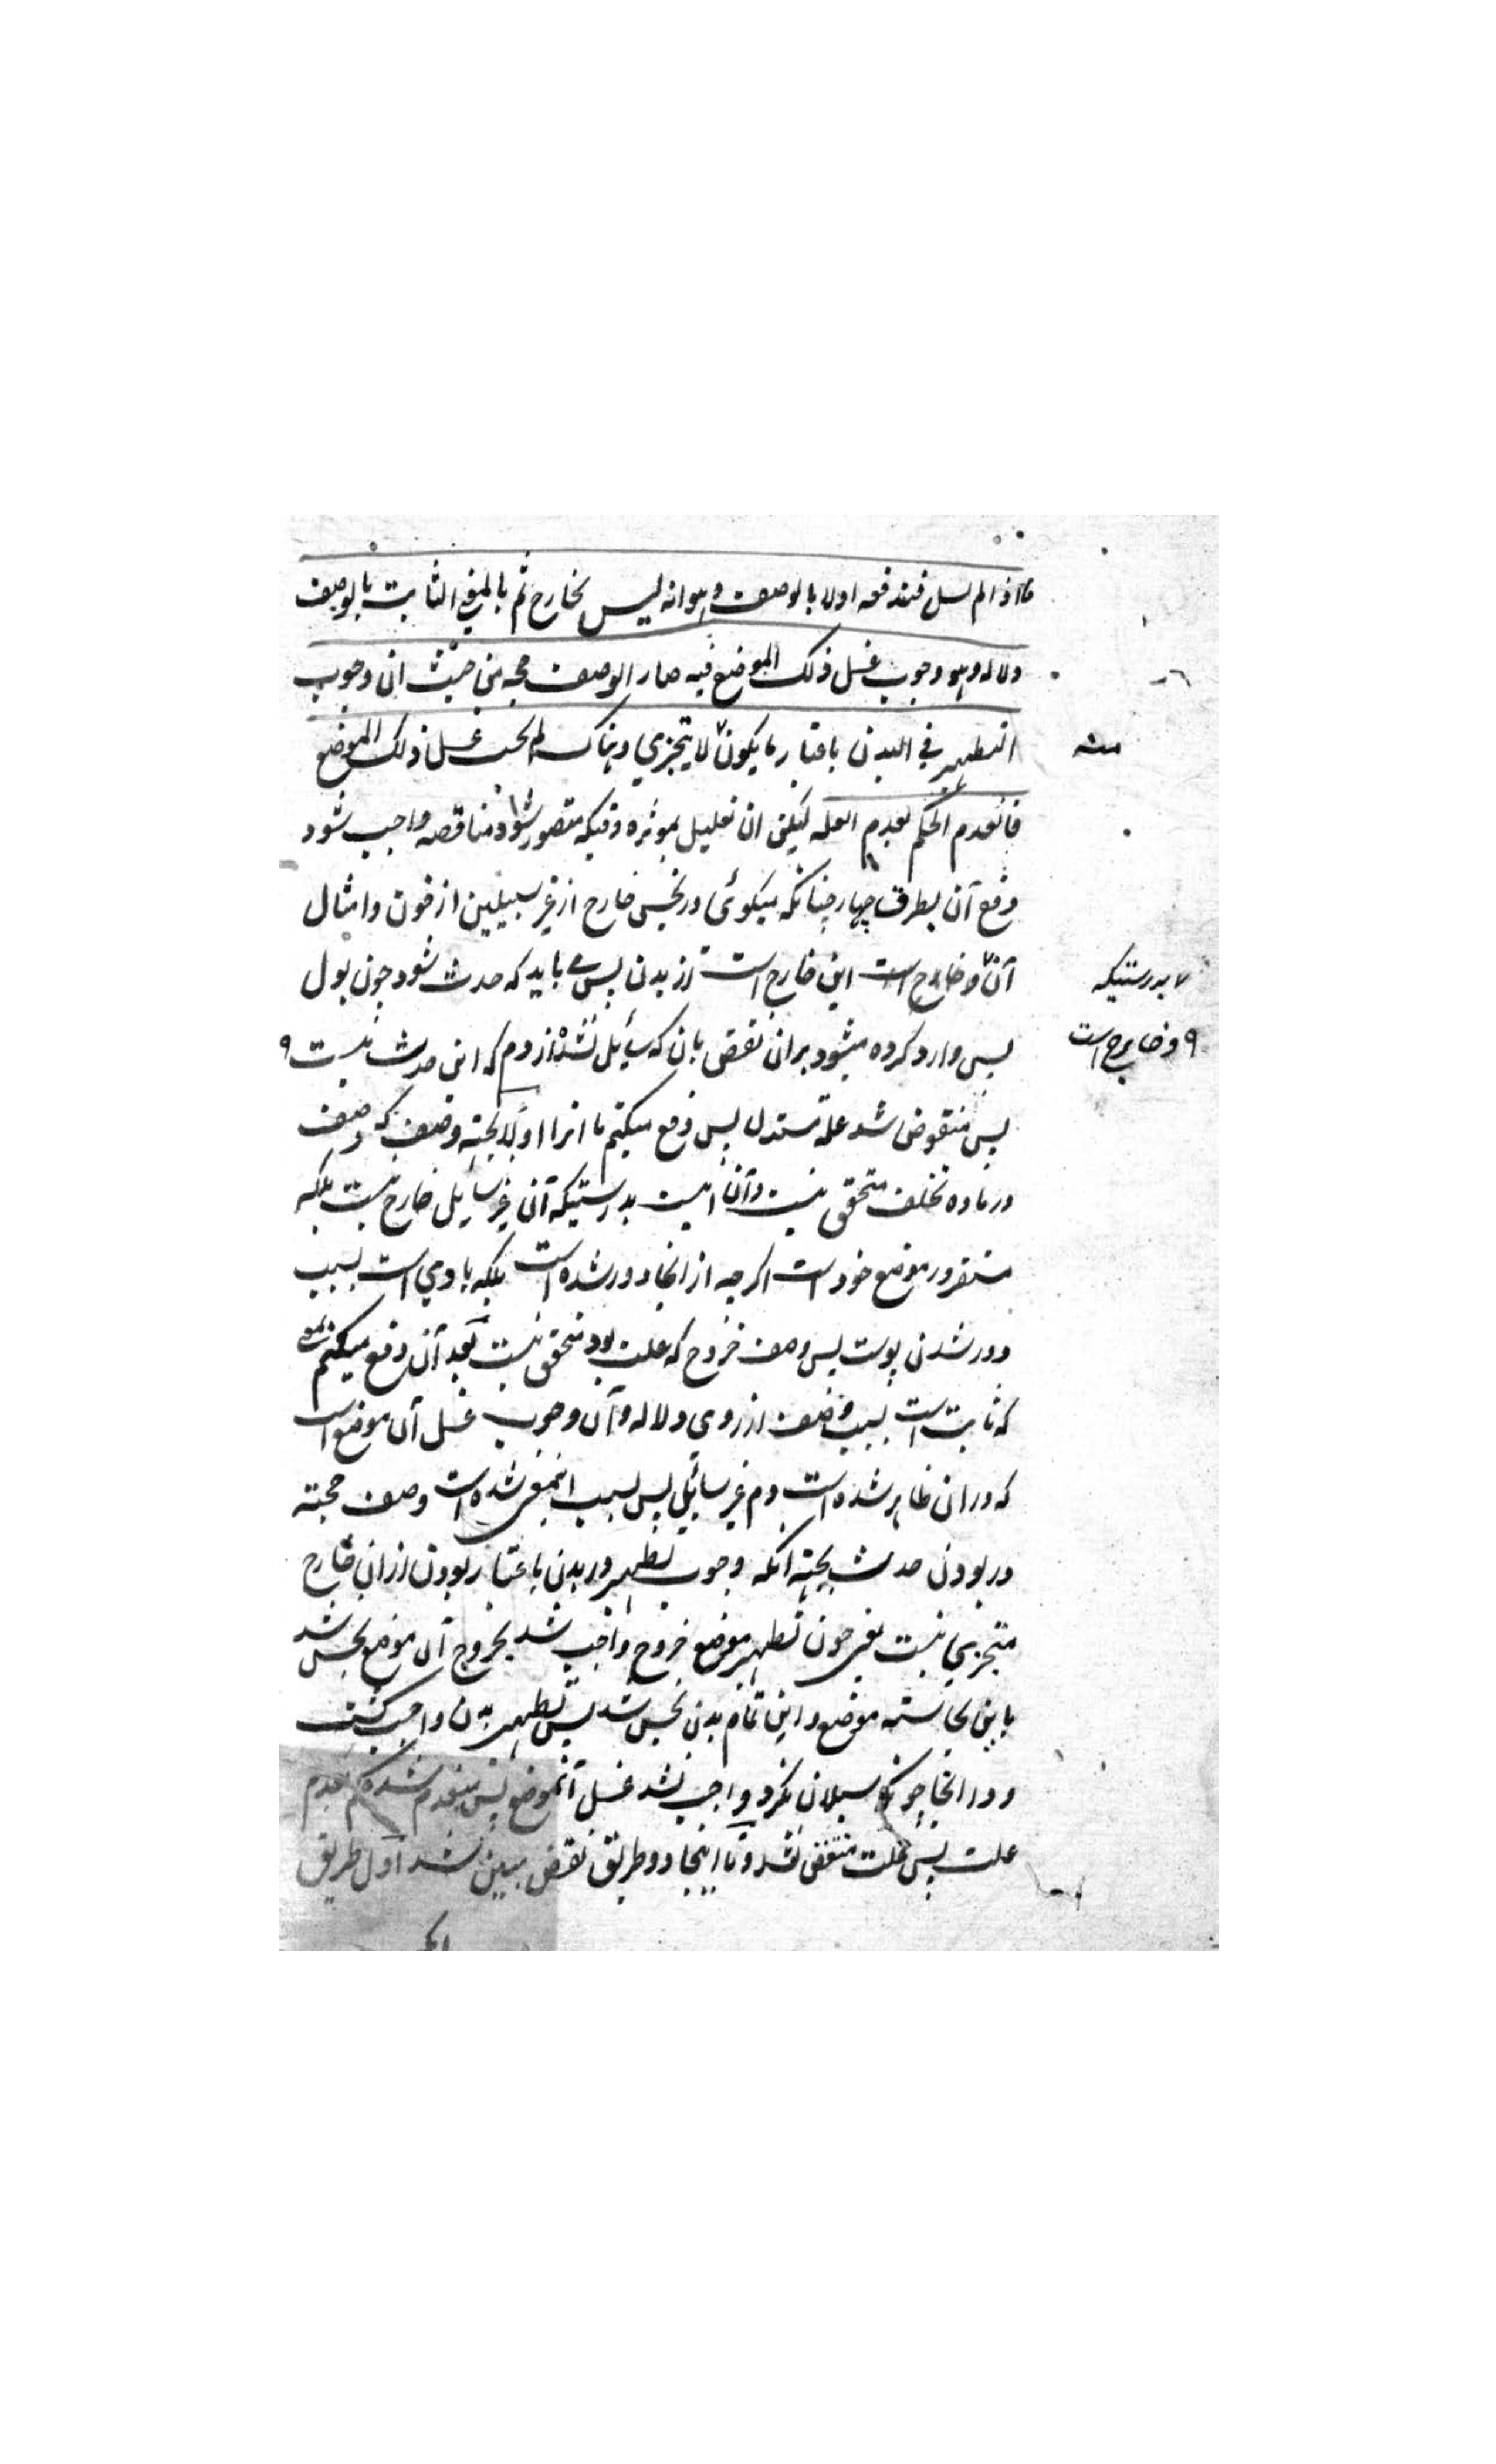 ما اذا لم یسل فندفعه اولا بالوصف وهوانه لیس بخارج ثم بالمعنی الثابت بالوصف
دلاله وهو وجوب غسل ذلک الموضع فیه صار الوصف حجه من حیث ان وجوب
التطهیر فی البدن باعتبار ما یکون لا یتجزی وهناک لم یجب غسل ذلک الموضع
منه
فانعدم الحکم لعدم العله لیکن ان تعلیل بموثره وقتیکه متصور شود مناقضه واجب شود
دفع آن بطرق چهار چنانکه میکوئی در نجس خارج از غیر سبیلین از خون و امثال
آن خارج است این خارج است از بدن پس می باید که حدث شود چون بول
۷ بدرستیکه
پس وارد کرده میشود بران نقض بان که سایل نشد از دم که این حدث نیست ۹
۹ و خارج است
پس منقوض شد علة مستدل پس دفع میکنیم ما انرا اولا بجهته وصف که وصف
در ماده تخلف متحقق نیست وآن اینست بدرستیکه آن غیر سایل خارج نیست بلکه
مستقر در موضع خود است اکرچه از انجا دور شده است بلکه بادی است بسبب
دور شدن پوست پس وصف خروج که علت بود متحقق نیست بعد آن دفع میکنیم بمعنی
که ثابت است بسبب وصف از روی دلاله وآن وجوب غسل آن موضع است
که دران ظاهر شده است دم غیر سایل پس بسبب اینمعنی شده است وصف حجته
در بودن حدث بجهته انکه وجوب تطهیر در بدن باعتبار بودن ازان خارج
متجزی نیست یعنی چون تطهیر موضع خروج واجب شد بخروج آن موضع نجس شد
باین نجاسته موضع و این تمام بدن نجس شد پس تطهیر بدن واجب کشت
و در انجا چونکه سیلان نکرد واجب نشد غسل آنموضع پس منعدم شد حکم بعدم
علت پس علت منتقض نشد وتا اینجا دو طریق نقض مبین شد اول طریق